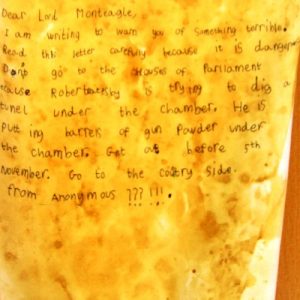 Dear Lord Monteagle,
I am writing to warn you of something terrible.
Read this letter carefully because it is danger
Don't go to the Houses of Parliament
cause Robert catesby is trying to dig a
tunel under the chamber. He is
putt ing barrels of gun Powder under
the chamber. Get out before 5th
November. Go to the coutry side.
from Anonymous ??? !!!.